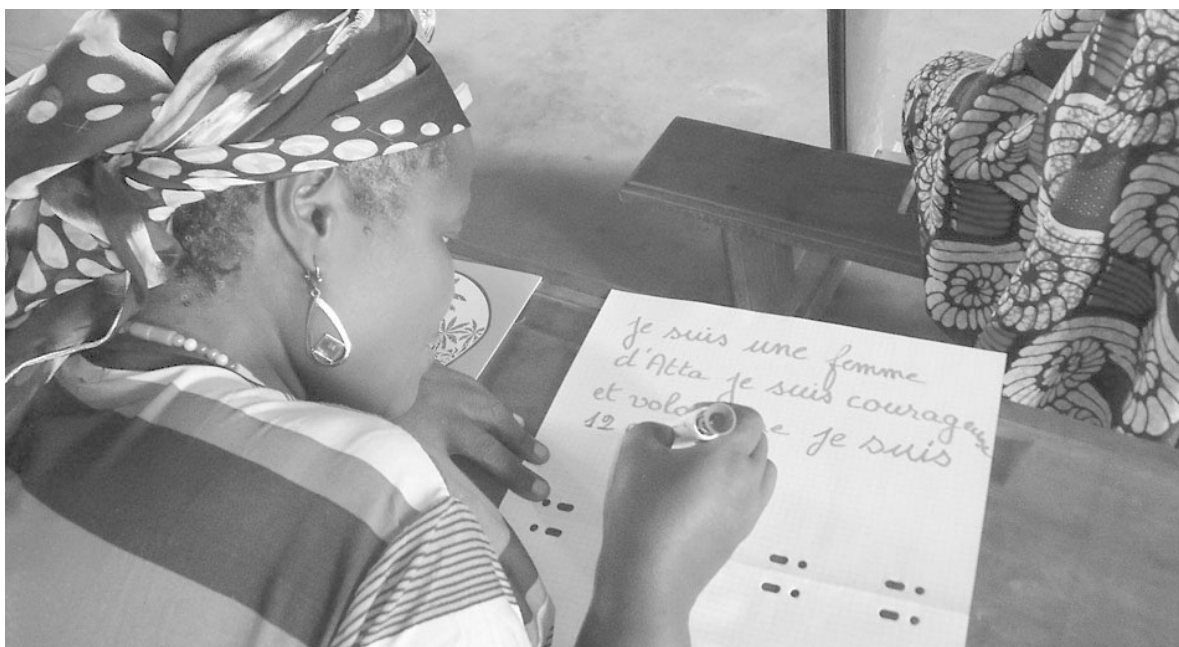 je suis une femme
d'Atta je suis courageuse
et je suis
12